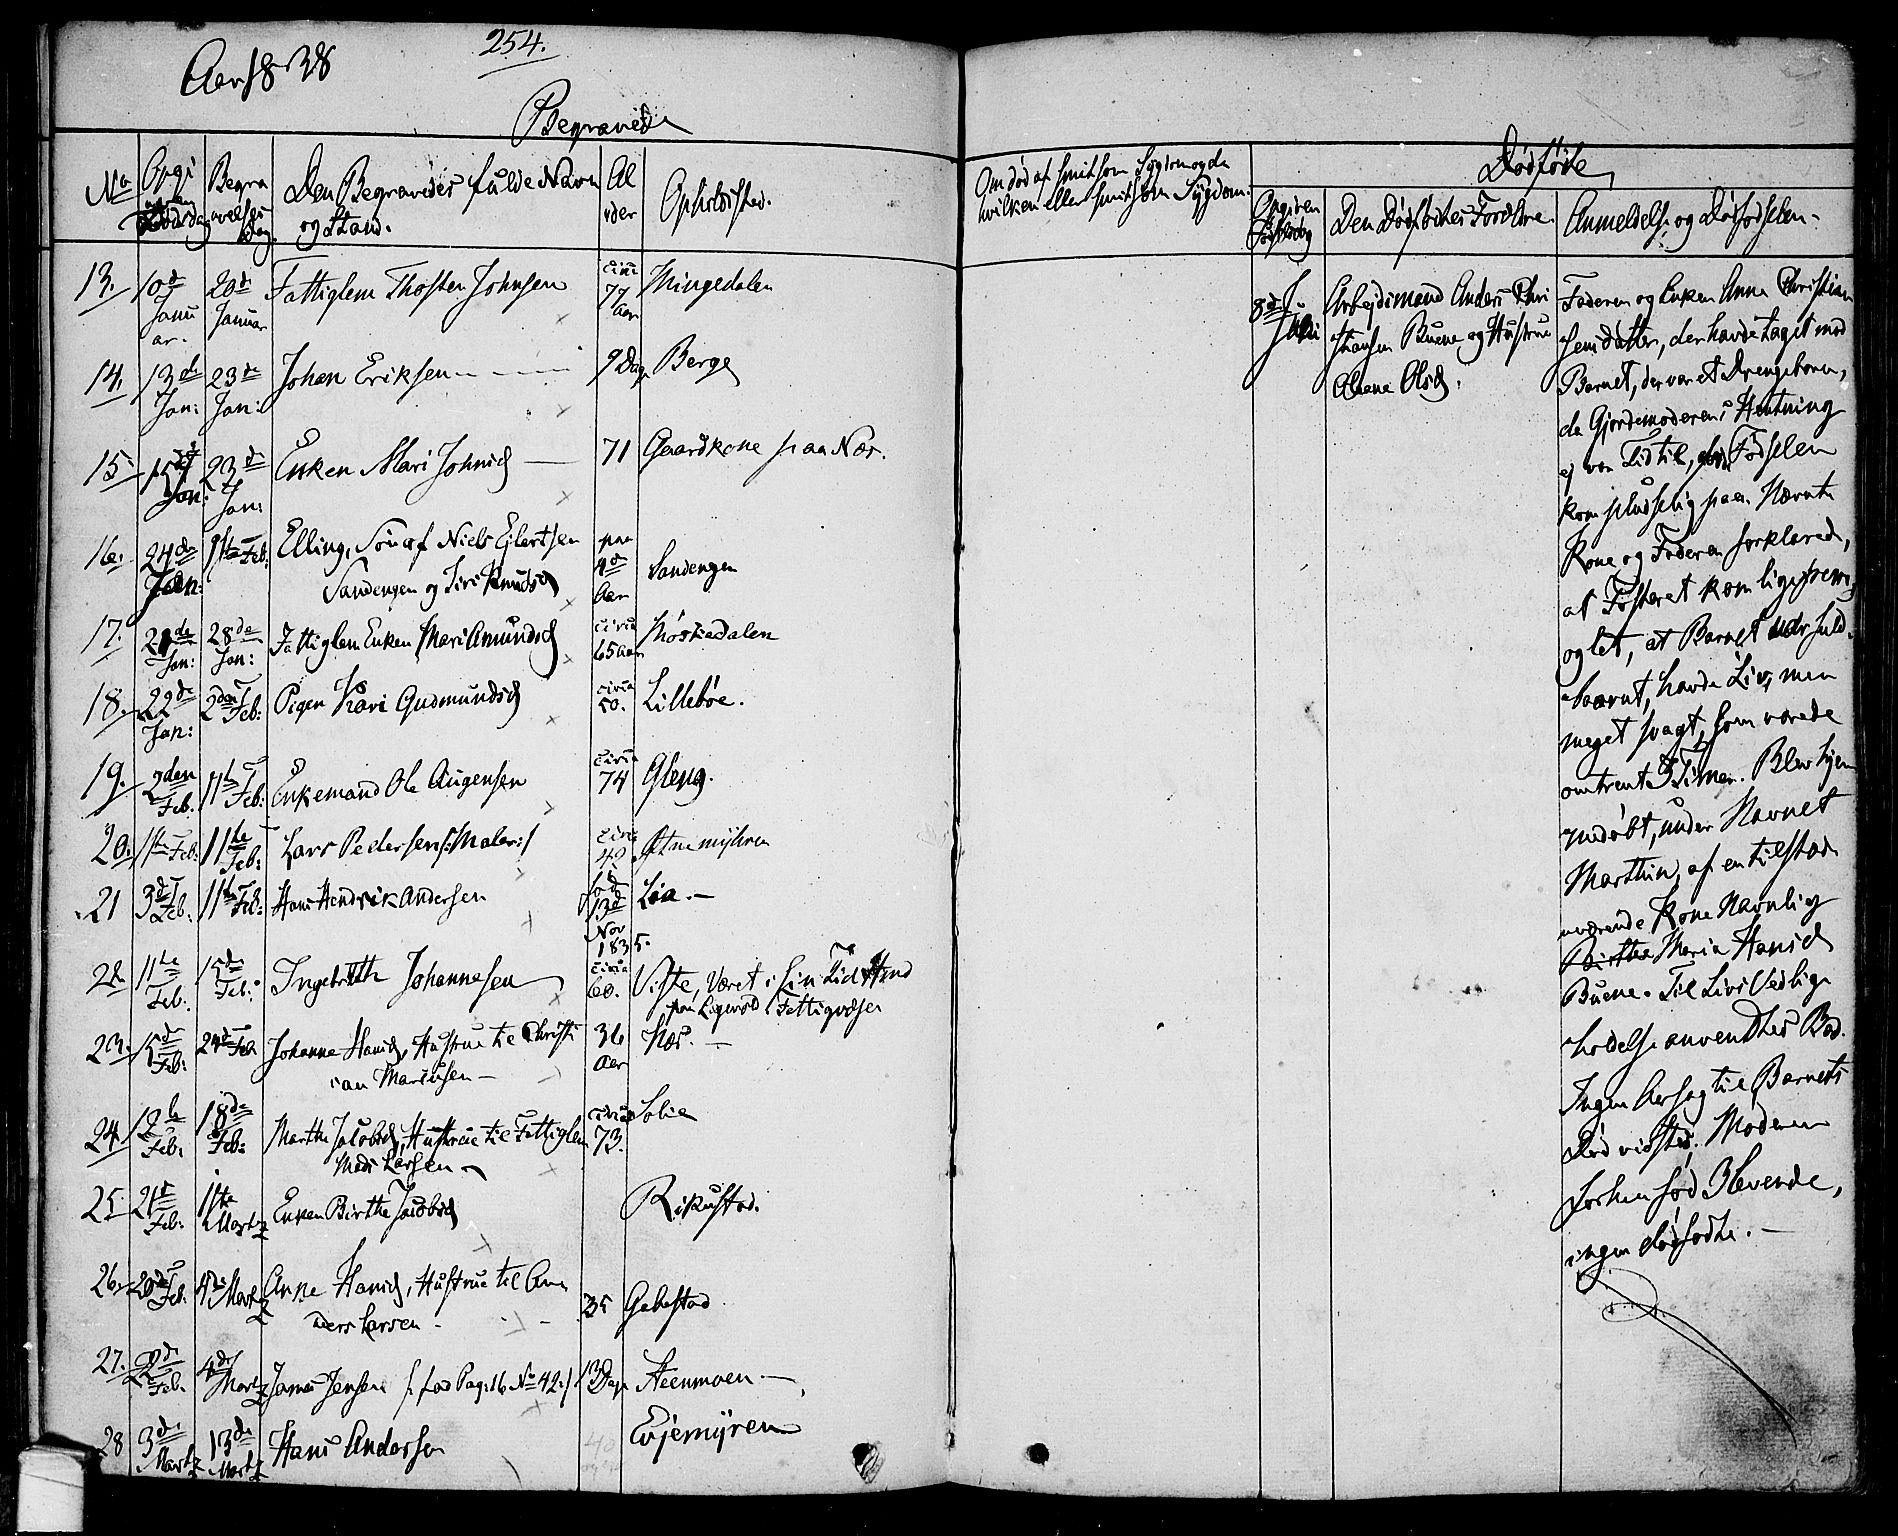 Aar 1838
254.
Begravede
No
Opgi
Dødsdag
Begra
velses
Dag.
Den Begravedes fulde Navn
og Stand.
Al
der
Opholdsted.
13. 10de Januar. 20de Januar Fattiglem Thosten Johnsen circa 77 Aar Mingedalen
14. 13de Jan: 23de Jan: Johan Eriksen 9 Dage Berge
15. 15de Jan: 23de Jan: Enken Mari Johnsd 71 Gaardkone paa Næs.
16. 24de Jan: 11te Feb: Elling, Søn af Niels Ejlertsen
Sandengen og Siri Knudsd paa 4de Aar Sandengen
17. 21de Jan: 28de Jan: Fattiglem Enken Mari Amundsd circa 65 Aar
18. 22de Jan: 2den Feb: Pigen Kari Gudmundsd circa 50. Lillebøe.
19. 2den Feb. 11te Feb: Enkemand Ole Augensen circa 74 Gleng.
20. 1te Feb: 11te Feb: Lars Pedersen /:Maler:/ circa 49
21 3de Feb: 11te Feb: Hans Hendrik Andersen fød 13de Nov 1835. Lia.
22. 11te Feb: 15de Feb: Ingebreth Johannesen circa 60. Viste, Været i sin Tid
paa Fattigvæsen
23. 15de Feb: 24de Feb. Johanne Hansd, Hustrue til Christi
an Mariusen 36 Aar Næs.
24. 12te Feb: 18de Feb: Marthe Jacobsd, Hustrue til Fattiglem
Mads Larsen circa 73. Solie
25. 21de Feb: 11te Martz Enken Birthe Jacobsd Rikustad.
26. 20de Feb. 4de Martz Anne Hansd, Hustrue til An
ders Larsen 35 Gabestad
27. 22de Feb. 4de Martz James Jensen /: fød Pag: 16 No 42:/ 13 Dage Steenmoen
28 3de Martz 13de Martz Hans Andersen 40 Evjemyren
Om død af smitsom Sygdom og da
hvilken eller smitsom Sygdom.
Dødføde
Opgiven
Fødseldag
Den Dødfødtes Forældre.
Anmeldelse og Dødfødselen.
8de Juli
Arbejdsmand Anders Chri
stiansen Buene og Hustrue
Oleane Olsd.
Faderen og Enken Anne Christian
sensdatter, der havde taget mod
Barnet, der var et Drengebarn,
da Gjordemoderens Hentning
ej var Tid til, da Fødselen
kom pludselig paa. Nævnte
Kone og Faderen forklarede,
at Fosteret kom lige frem
og let, at Barnet var fuld
baarnt, havde Liv, men
meget svagt, som varede
omtrent 3 Timer. Blev hjem
medøbt, under Navnet
Marthin, af en tilstede
værende Kone Navnlig
Birthe Maria Hansd
Buene. Til Livs Vedlige
holdelse anvendtes Bad.
Ingen Aarsag til Barnets
Død vidstes. Moderen
forhen fød 3 levende,
ingen dødfødte.